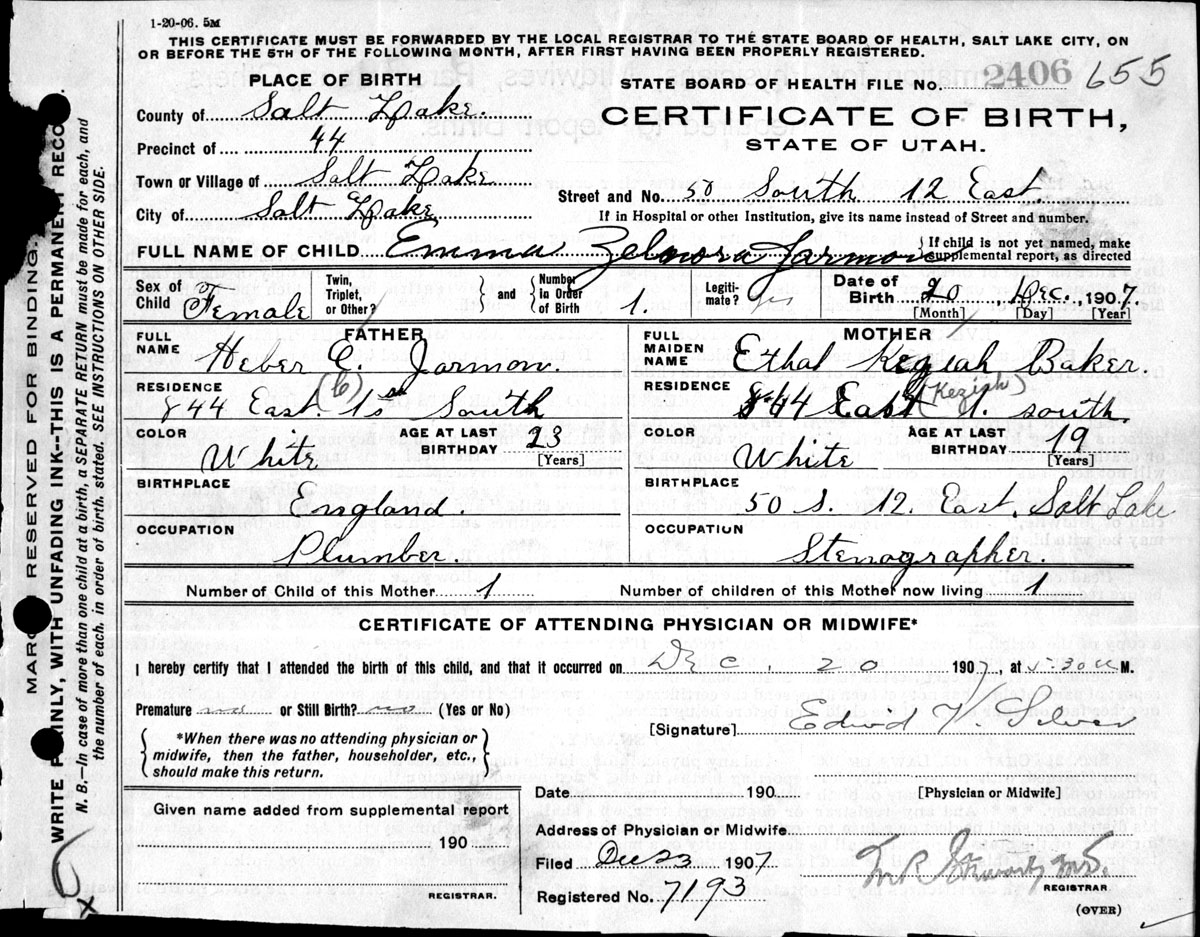 1-20-06. 5M
THIS CERTIFICATE MUST BE FORWARDED BY THE LOCAL REGISTRAR TO THE STATE BOARD OF HEALTH, SALT LAKE CITY, ON
OR BEFORE THE 5TH OF THE FOLLOWING MONTH, AFTER FIRST HAVING BEEN PROPERLY REGISTERED.
PLACE OF BIRTH
STATE BOARD OF HEALTH FILE No. 2406 655
County of Salt Lake.
CERTIFICATE OF BIRTH,
Precinct of 44
STATE OF UTAH.
Town or Village of Salt Lake
Street and No. 50 South 12 East.
City of Salt Lake
If in Hospital or other Institution, give its name instead of Street and number.
FULL NAME OF CHILD Emma Zelnora Jarmon
If child is not yet named, make
supplemental report, as directed
Sex of Child Female
Twin, Triplet, or Other?
and
Number in Order of Birth 1.
Legiti- mate? yes
Date of Birth 20, Dec. 1907.
[Month] [Day] [Year]
FATHER
FULL NAME Heber E. Jarmon.
MOTHER
FULL MAIDEN NAME Ethal Keziah Baker.
(Keziah)
RESIDENCE 844 East. 1st South
(6)
RESIDENCE 844 East 1. South
COLOR White
AGE AT LAST BIRTHDAY 23 [Years]
COLOR White
AGE AT LAST BIRTHDAY 19 [Years]
BIRTHPLACE England.
BIRTHPLACE 50 S. 12. East, Salt Lake
OCCUPATION Plumber.
OCCUPATION Stenographer.
Number of Child of this Mother 1
Number of children of this Mother now living 1
CERTIFICATE OF ATTENDING PHYSICIAN OR MIDWIFE*
I hereby certify that I attended the birth of this child, and that it occurred on Dec. 20 1907, at 5:30 a M.
Premature no or Still Birth? no (Yes or No)
[Signature] Edwid V. Silver
*When there was no attending physician or
midwife, then the father, householder, etc.,
should make this return.
Date 190
[Physician or Midwife]
Given name added from supplemental report
190
REGISTRAR.
Address of Physician or Midwife
Filed Dec 23 1907
REGISTRAR
Registered No. 7193
(OVER)
MARGIN RESERVED FOR BINDING.
WRITE PLAINLY, WITH UNFADING INK—THIS IS A PERMANENT RECO
N. B.—In case of more than one child at birth, a SEPARATE RETURN must be made for each, and
the number of each, in order of birth, stated. SEE INSTRUCTIONS ON OTHER SIDE.
X